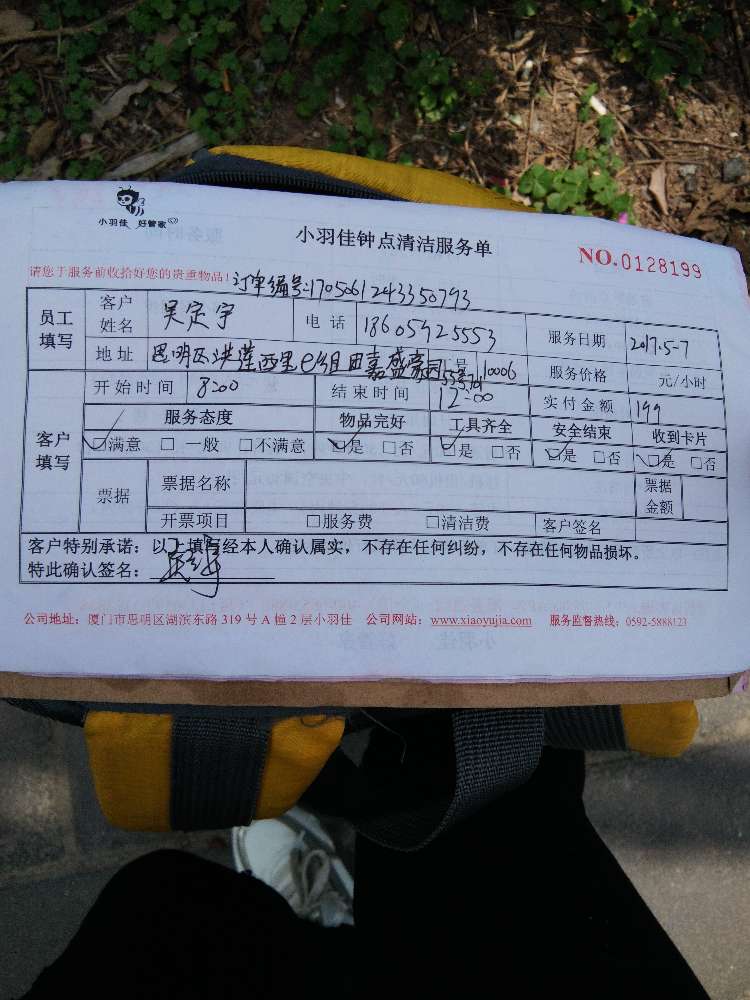 小羽佳 好管家
小羽佳钟点清洁服务单
NO.0128199
请您于服务前收拾好您的贵重物品!
订单编号:1705061243350793
员工填写 客户姓名 吴定宇 电话 18605925553 服务日期 2017.5-7
地址 思明区洪莲西里 嘉盛豪园 10006 服务价格 元/小时
客户填写 开始时间 8:00 结束时间 12:00 实付金额 199
服务态度 物品完好 工具齐全 安全结束 收到卡片
☑满意 □一般 □不满意 ☑是 □否 ☑是 □否 ☑是 □否 ☑是 □否
票据 票据名称 票据金额
开票项目 □服务费 □清洁费 客户签名
客户特别承诺:以上填写经本人确认属实,不存在任何纠纷,不存在任何物品损坏。
特此确认签名:
公司地址:厦门市思明区湖滨东路 319 号 A 幢 2 层小羽佳 公司网站:www.xiaoyujia.com 服务监督热线:0592-5888123